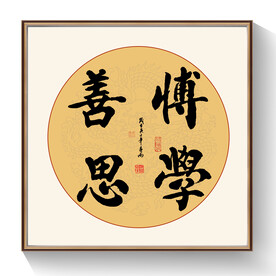 博學
善思